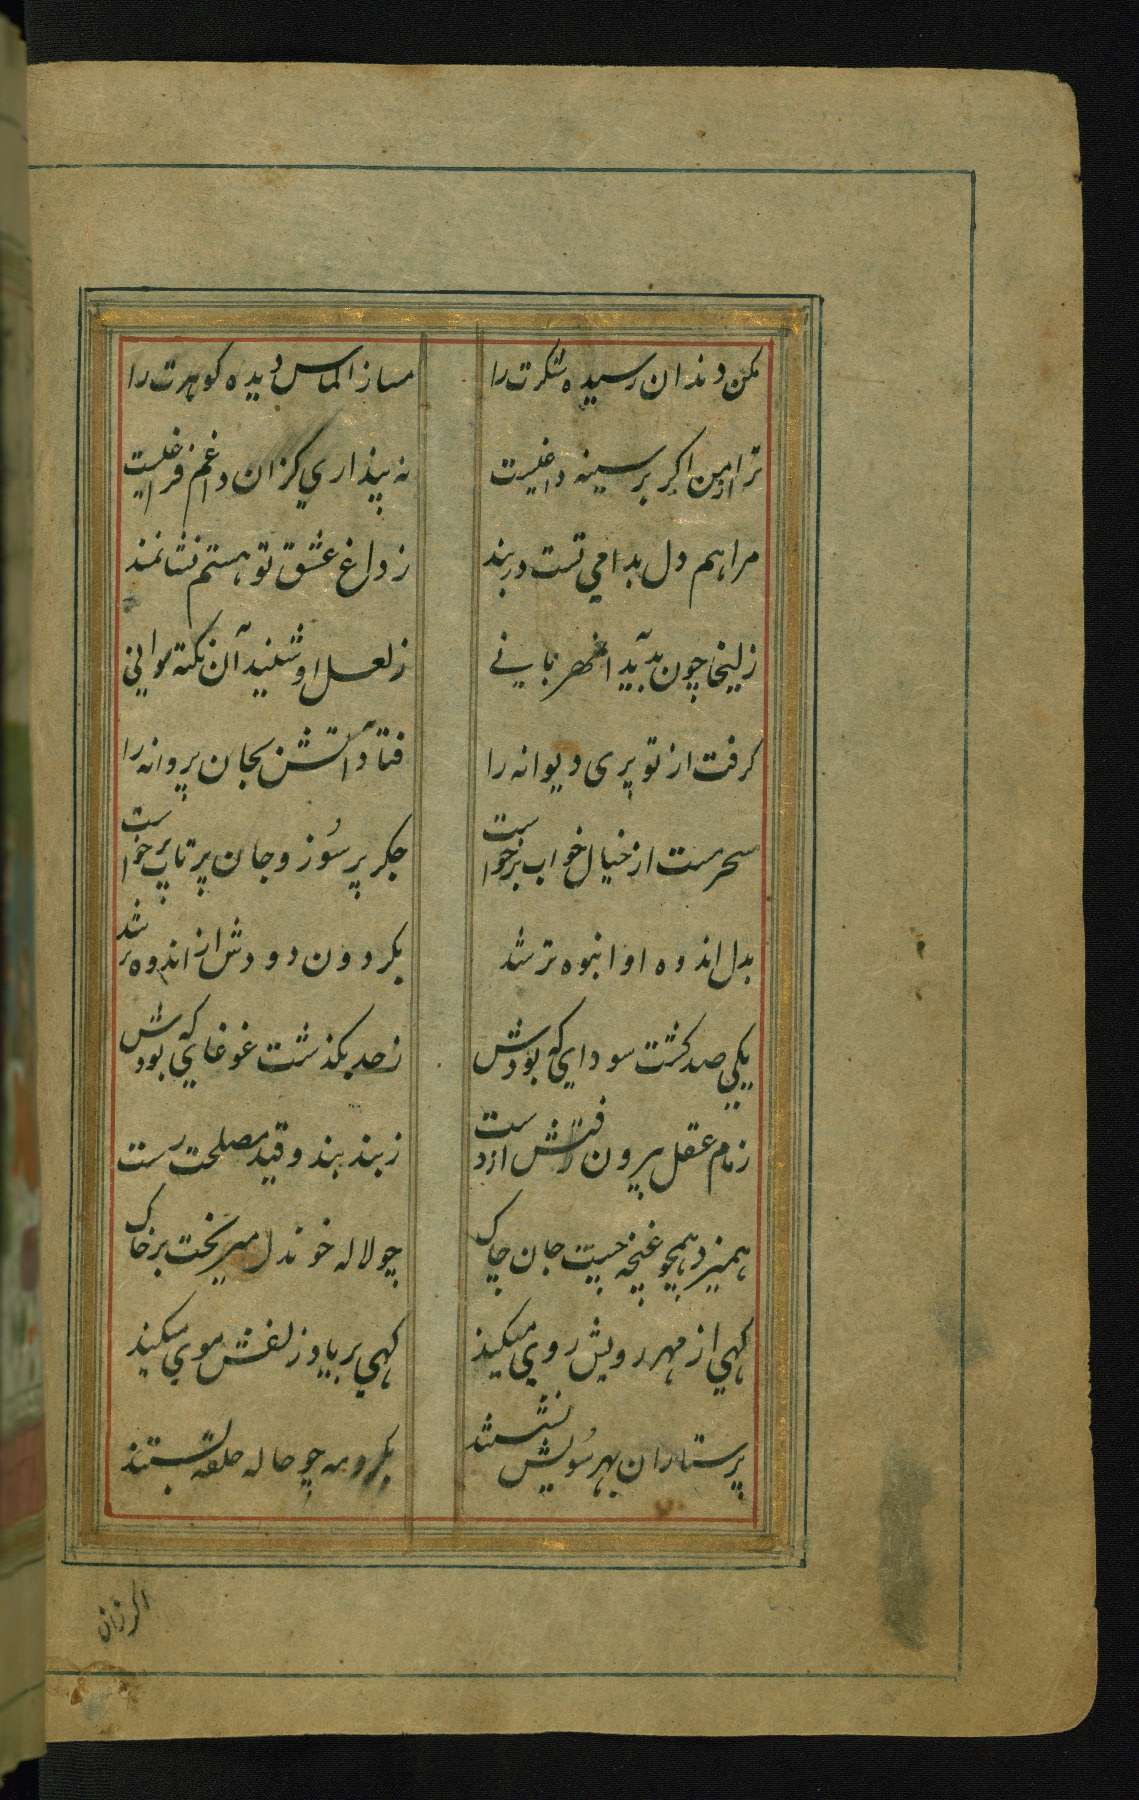 مکن دندان رسیده شکرت را مساز الماس دیده گوهرت را
ترا از من اگر بر سینه داغیست نه پنداری کزان داغم فراغیست
مرا هم دل بدامی تست در بند ز داغ عشق تو هستم نشانمند
زلیخا چون بدید آن مهربانی ز لعل او شنید آن نکته
گرفت از تو پری دیوانه را فتاد آتش بجان پروانه را
سحر مست از خیال خواب برخواست جگر پر سوز و جان پر تاب برخواست
بدل اندوه او انبوه تر شد بگردون دودش از اندوه بر شد
یکی صد گشت سودای که بودش ز حد بگذشت غوغای که بودش
زمام عقل بیرون رفتش از دست ز بند پند و قید مصلحت رست
همیزد همچو غنچه جیب جان چاک چو لاله خوندل میریخت بر خاک
گهی از مهر رویش روی میکند گهی بر یاد زلفش موی میکند
پرستاران بهر سویش نشستند بگرد مه چو هاله حلقه بستند
اگر زان